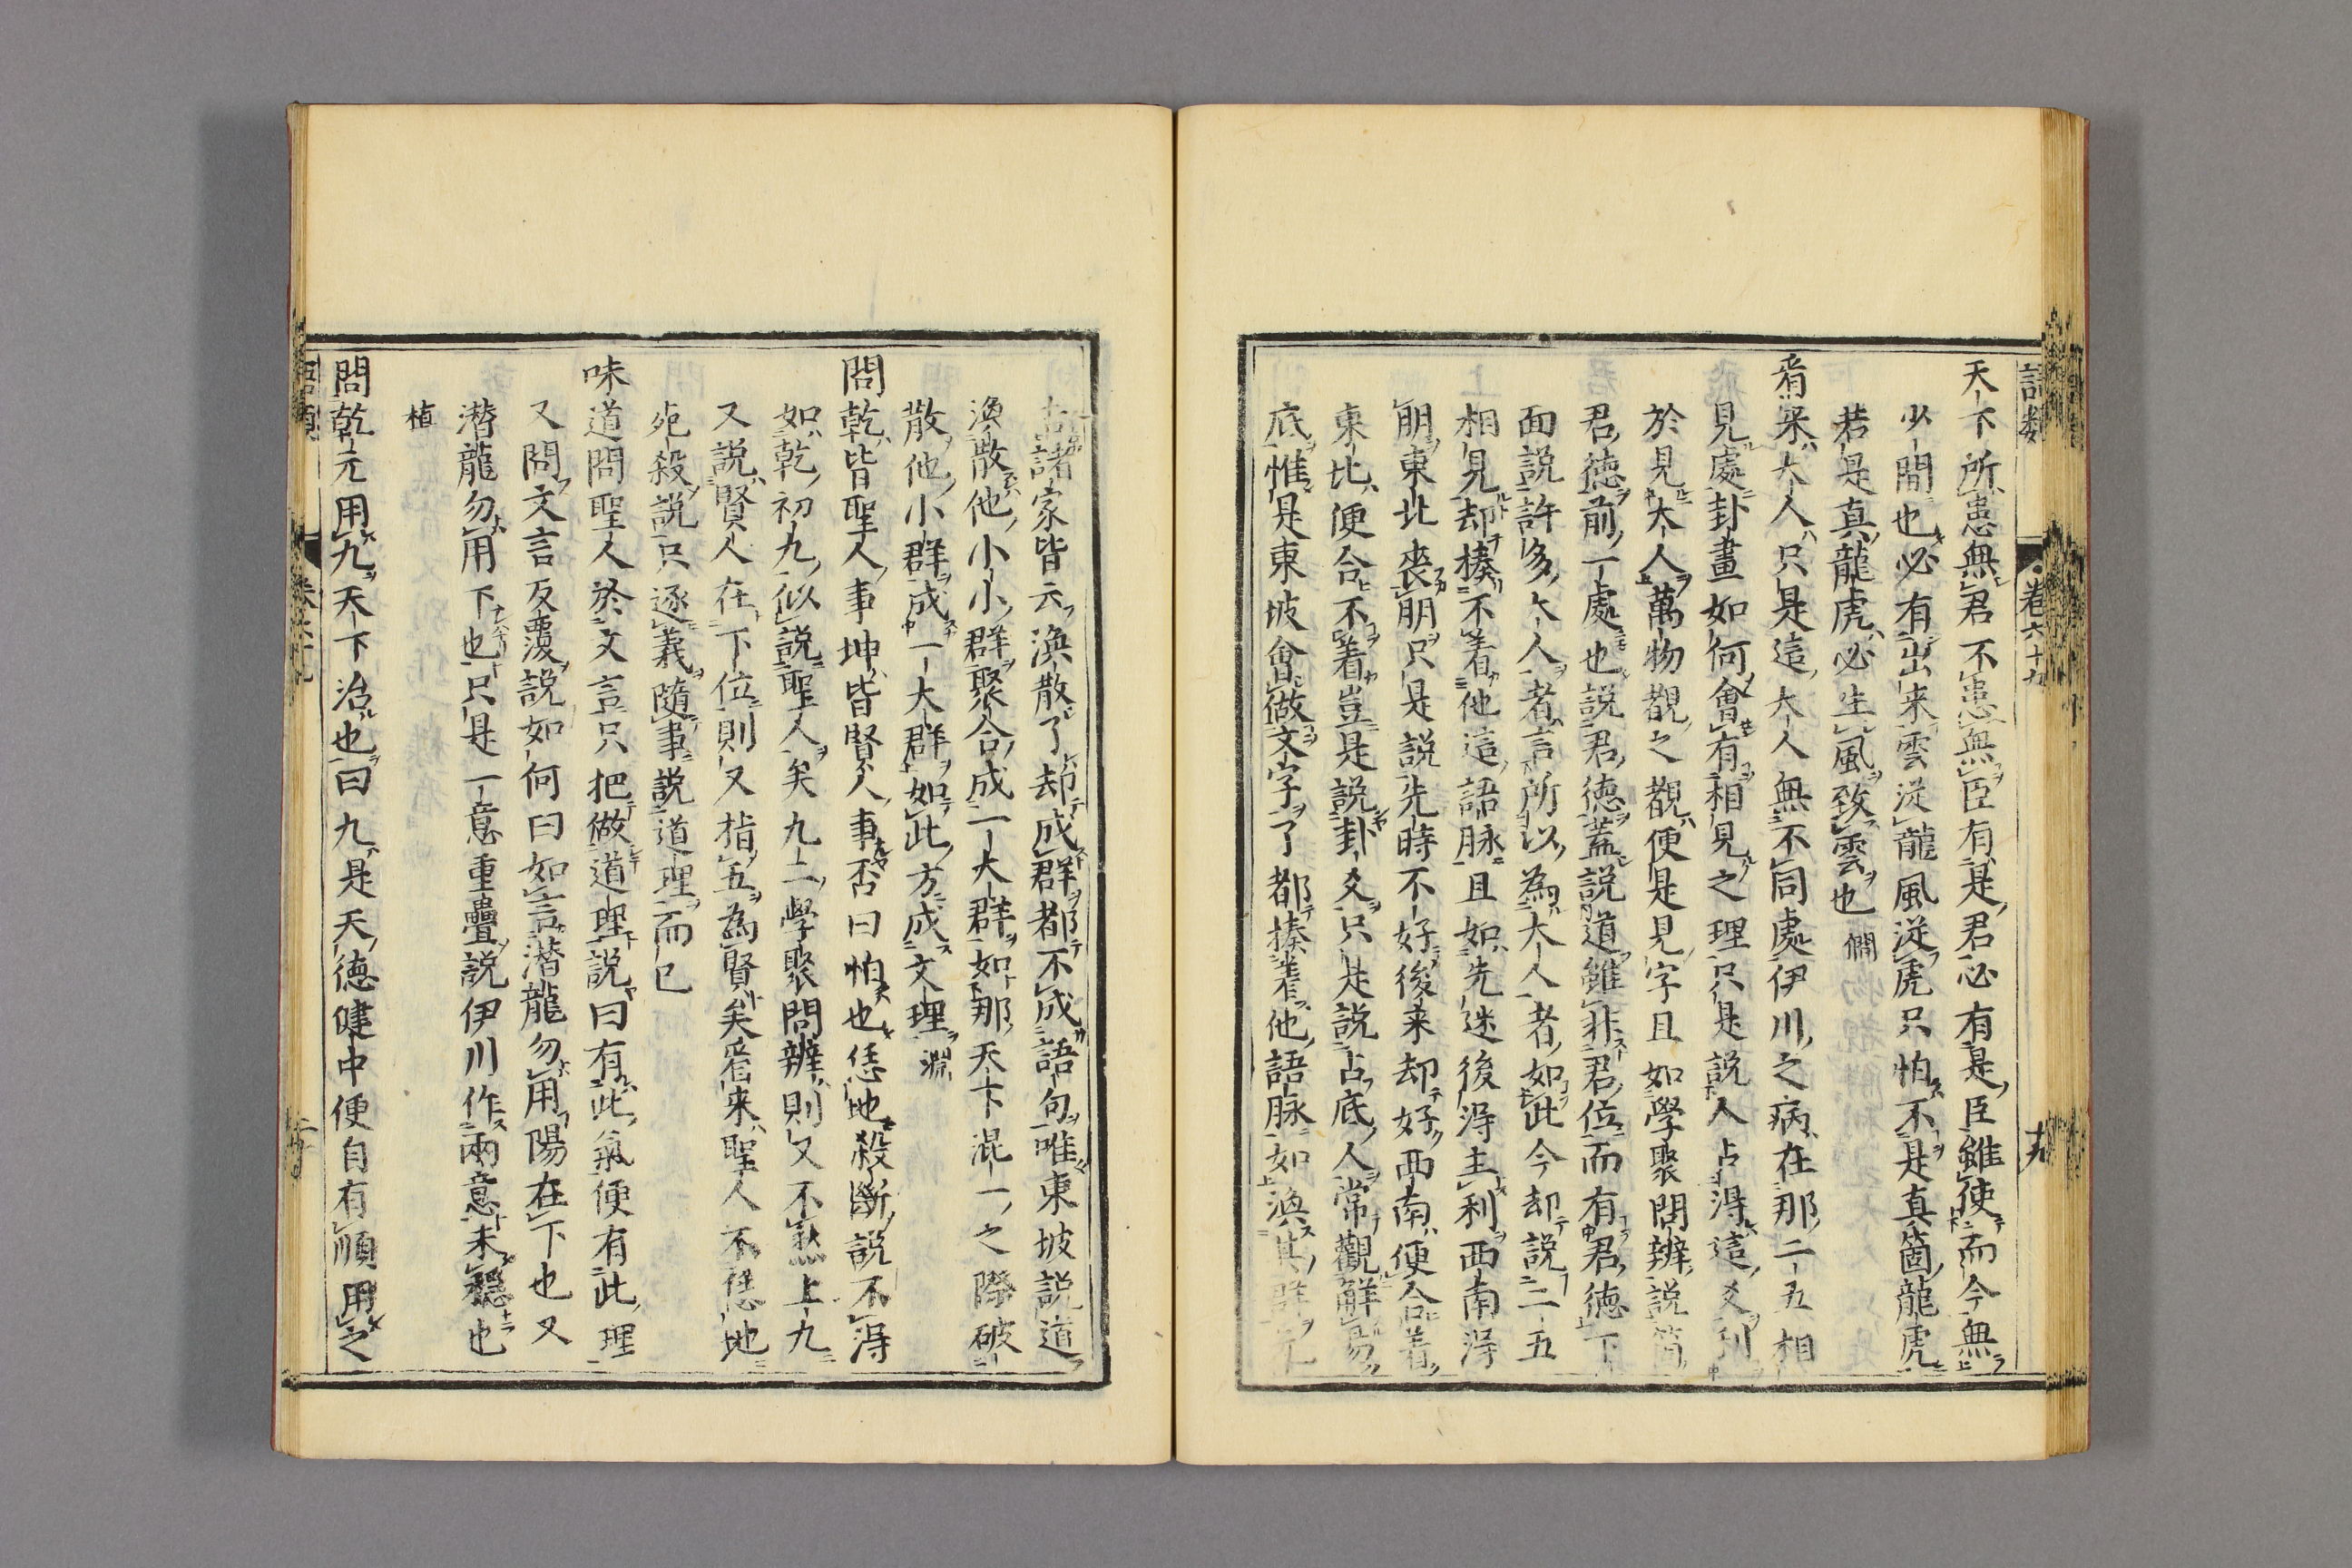 語類
卷六十九
十九
天下所患無君不患無臣有是君必有是臣雖使而今無
少間也必有出来雲從龍風從虎只怕不是真箇龍虎
若是真龍虎必生風致雲也 僩
看来大人只是這大人無不同處伊川之病在那二五相
見處卦畫如何會有相見之理只是説人占得這爻利
於見大人萬物覩之覩便是見字且如學聚問辨説箇
君德前一處也説君德蓋説道雖非君位而有君德下
面説許多大人者言所以為大人者如此今却説二五
相見却揍不着他這語脉且如先迷後得主利西南得
朋東北喪朋只是説先時不好後来却好西南便合着
東北便合不着豈是説卦爻只是説占底人常觀觧易
底惟是東坡會做文字了都揍着他語脉如渙其群元
吉諸家皆云渙散了却成群都不成語句唯東坡説道
渙散他小小群聚合成一大群如那天下混一之際破
散他小群成一大群如此方成文理 淵
問乾皆聖人事坤皆賢人事否曰怕也恁地殺斷説不得
如乾初九似説聖人矣九二學聚問辨則又不然上九
又説賢人在下位則又指五為賢矣看来聖人不恁地
死殺説只逐義隨事説道理而已
味道問聖人於文言只把做道理説曰有此氣便有此理
又問文言反覆説如何曰如言潜龍勿用陽在下也又
潜龍勿用下也只是一意重疊説伊川作兩意未穩也
植
問乾元用九天下治也曰九是天德健中便自有順用之
卷六十九